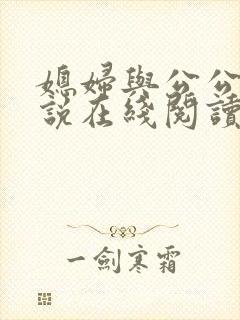 媳婦與公公
說在綫閱讀
一劍寒霜